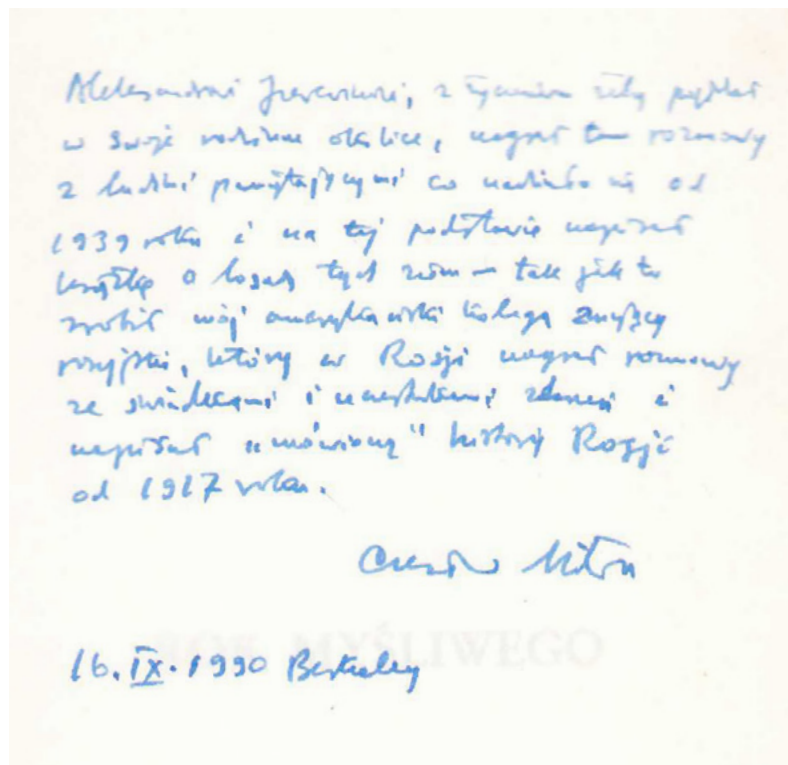 Aleksandrze Jurewiczowi, z życzeniem żeby pojechał
w swoje rodzinne okolice, nagrał tam rozmowy
z ludźmi pamiętającymi co nadziało się od
1939 roku i na tej podstawie napisał
książkę o losach tych ziem – tak jak to
zrobił mój amerykański kolega znający
rosyjski, który w Rosji nagrał rozmowy
ze świadkami i uczestnikami zdarzeń i
napisał „mówioną" historię Rosji
od 1917 roku.
Czesław Miłosz
ROK MYŚLIWEGO
16. IX. 1990 Berkeley